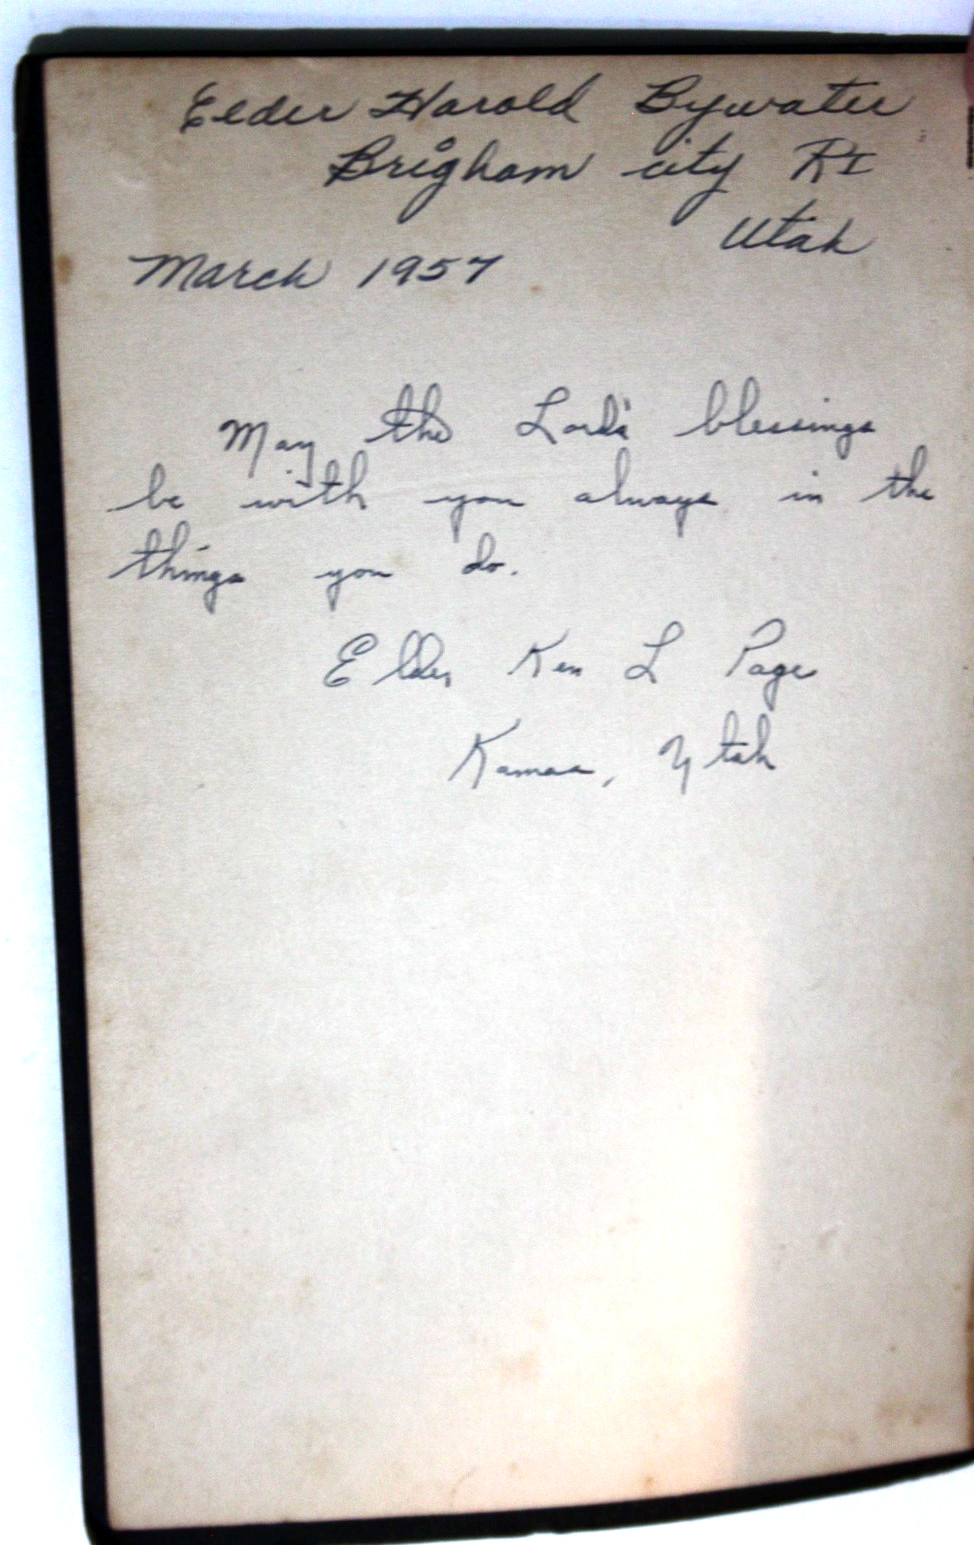 Elder Harold Bywater
Brigham city R1
Utah
March 1957
May the Lord's blessings
be with you always in the
things you do.
Elder Ken L Page
Kamas, Utah